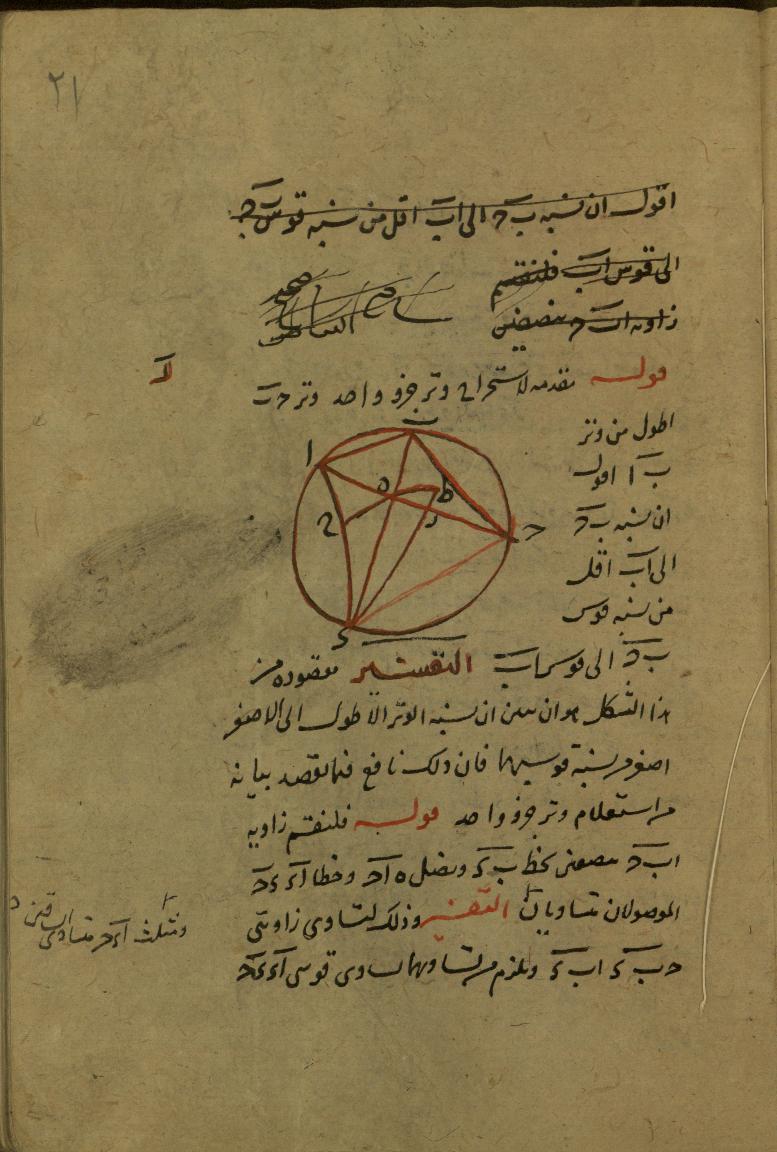 ٢١
اقول ان نسبه ب ح الى اب اقل من نسبه قوس ب ح
الى قوس اب فلنقسم
زاويه اب ح بنصفين
قوله مقدمه لاستخراج وتر جزو واحد وتر ح ب
لا
اطول من وتر
ب ا اقول
ان نسبه ب ح
الى اب اقل
من نسبه قوس
ب ح الى قوس اب التفسير مقصوده من
هذا الشكل هو ان يبين ان نسبه الوتر الاطول الى الاصغر
اصغر من نسبة قوسيهما فان ذلك نافع فيما نقصد بيانه
من استعلام وتر جزو واحد قوله فلنقسم زاويه
اب ح بنصفين بخط ب ء ونصل ه اح وخطا اء ء ح
الموصولان متساويان التفسير وذلك لتساوى زاويتى
ح ب ء اب ء ويلزم من تساويهما تساوى قوسى اء ء ح
ا
ب
ح
ء
ه
ط
ر
ومثلث اء ح متساوى الساقين